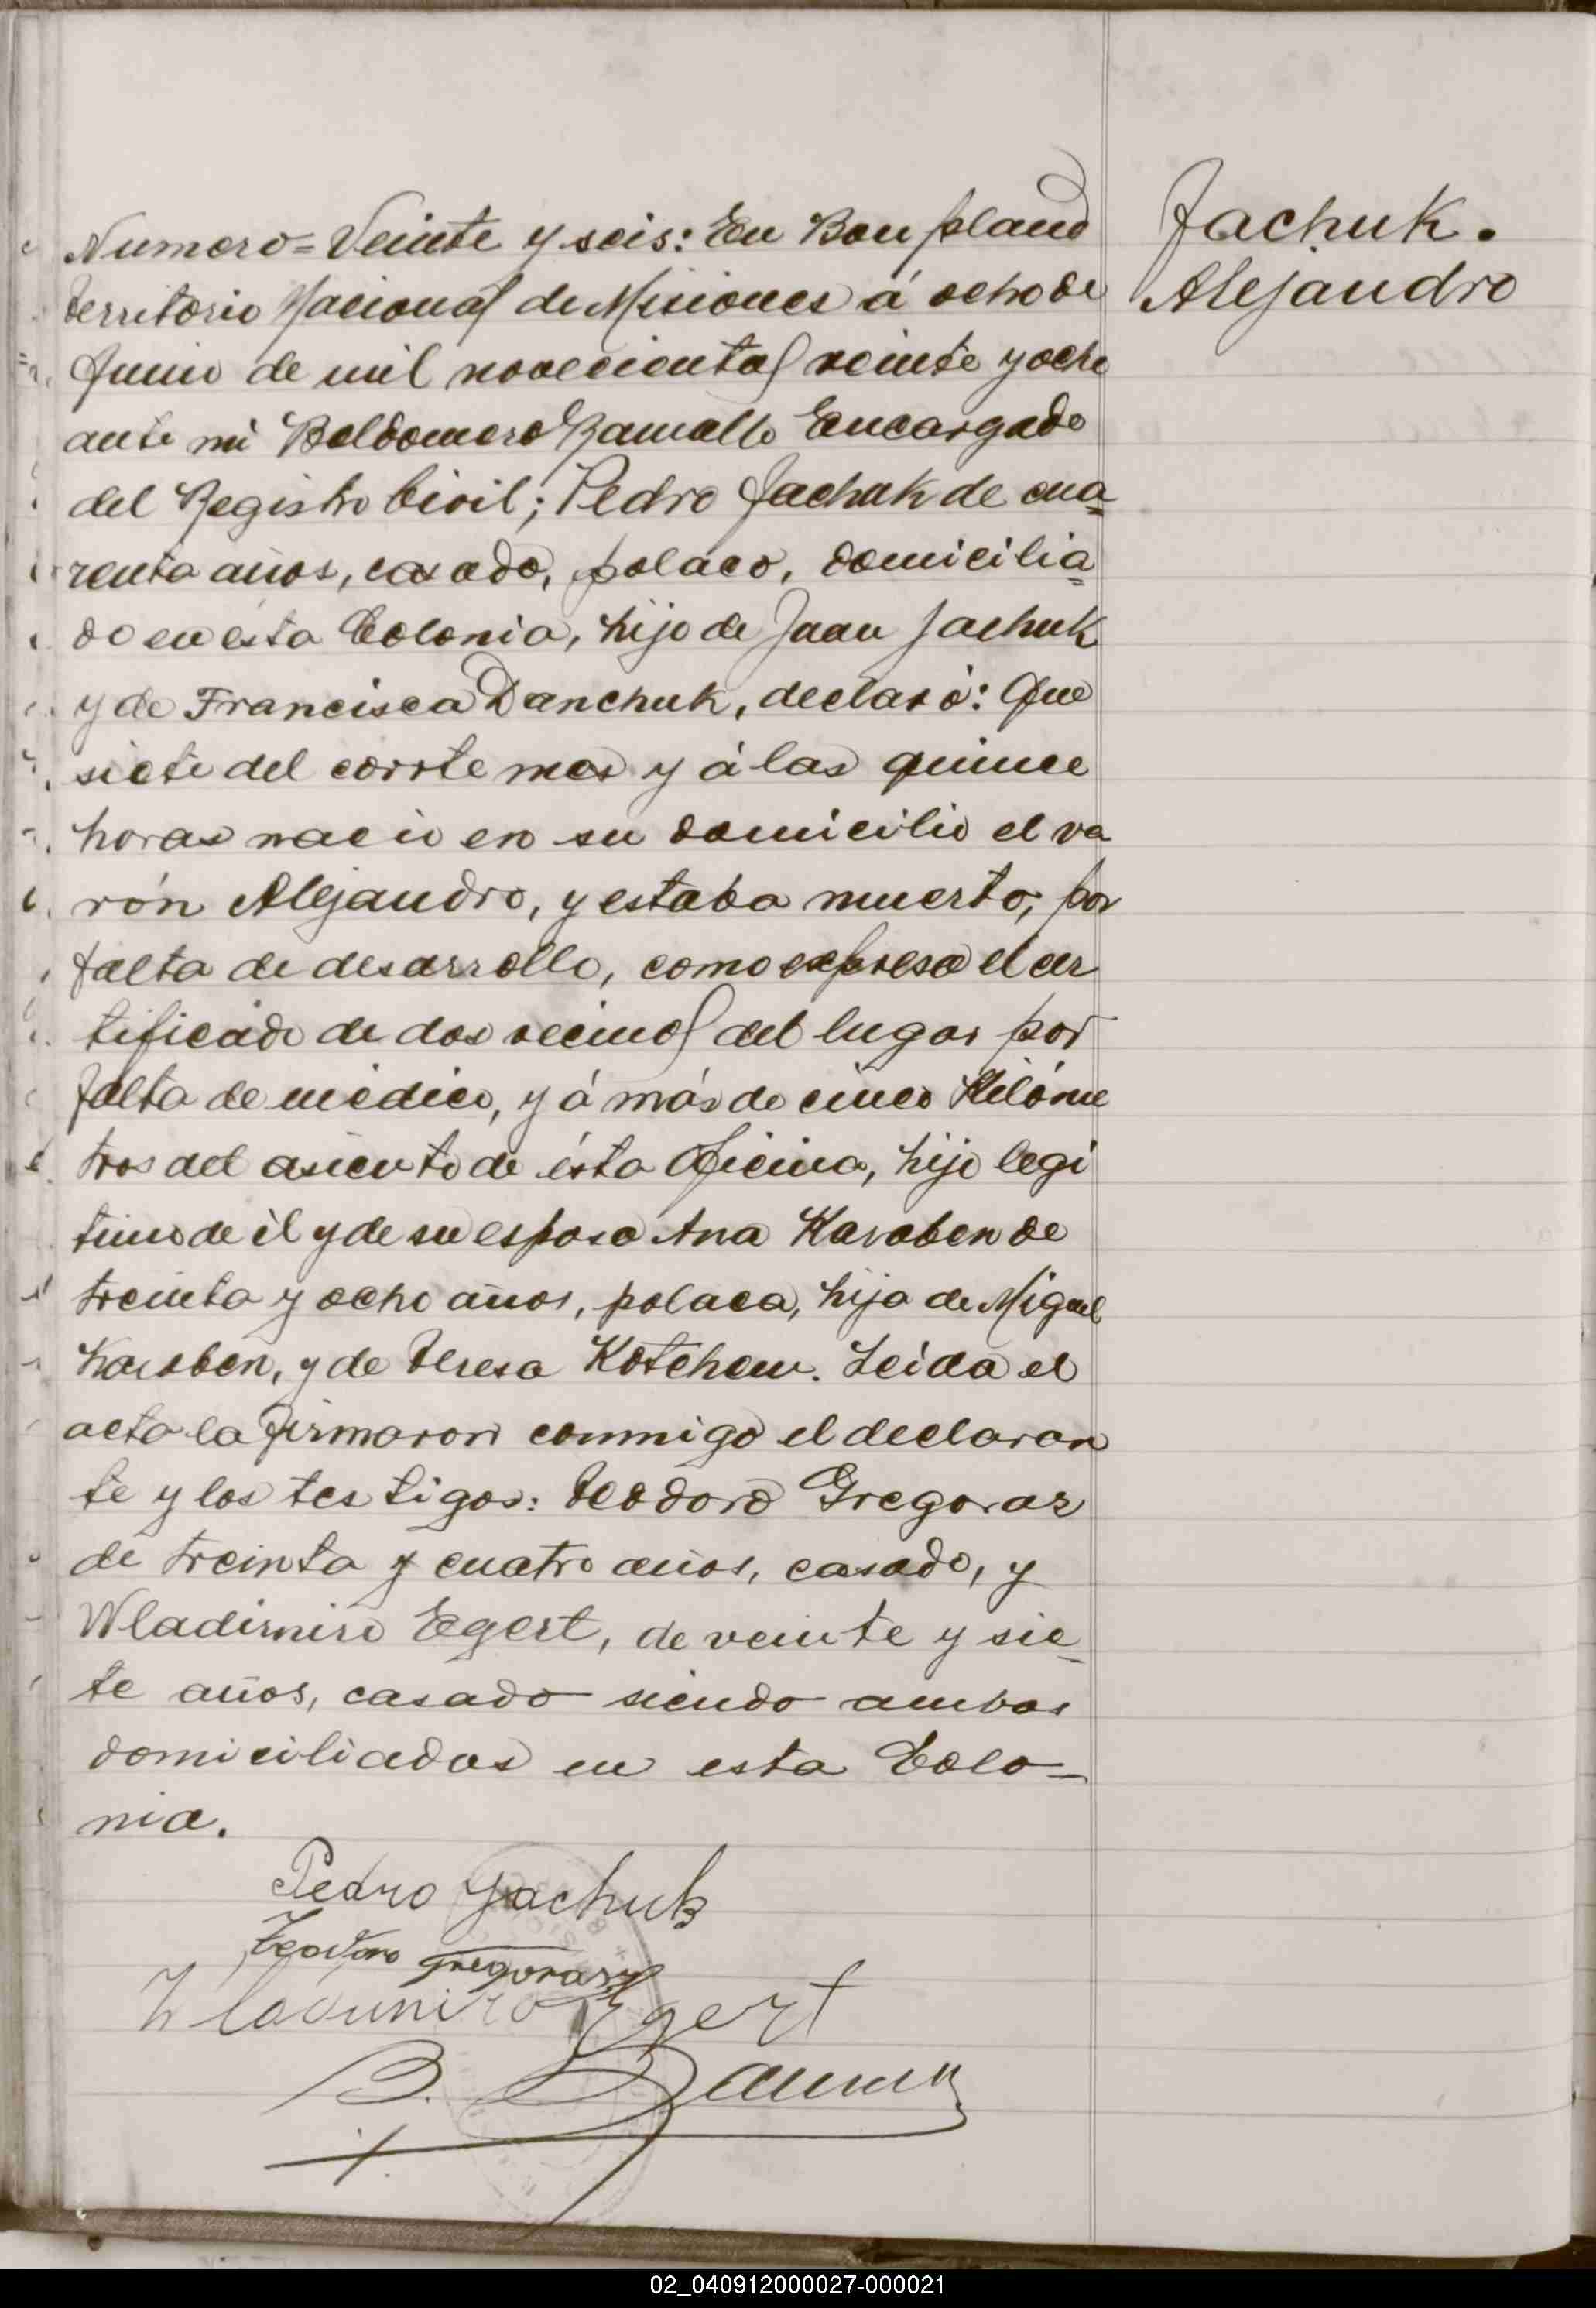 Jachuk.
Alejandro
Numero = Veinte y seis: En Bonpland
territorio Nacional de Misiones á ocho de
Junio de mil novecientos veinte y ocho
ante mi Baldomero Ramallo Encargado
del Registro Civil; Pedro Jachuk de cua-
renta años, casado, polaco, domicilia-
do en ésta Colonia, hijo de Juan Jachuk
y de Francisca Danchuk, declaró: Que
siete del corrte mes y á las quince
horas nacio en su domicilio el va
rón Alejandro, y estaba muerto, por
falta de desarrollo, como expresa el cer
tificado de dos vecinos del lugar por
falta de médico, y á más de cinco Kilóme
tros del asiento de ésta Oficina, hijo legi
timo de él y de su esposa Ana Karaben de
treinta y ocho años, polaca, hija de Miguel
Karaben, y de Teresa Kotchew. Leida el
acta la firmaron conmigo el declaran
te y los testigos: Teodoro Gregoraz
de treinta y cuatro años, casado, y
Wladimiro Egert, de veinte y sie-
te años, casado siendo ambos
domiciliados en esta Colo-
nia.
Pedro Jachuk
Teodoro Gregoraz
Wladimiro Egert
B.
02_040912000027-000021